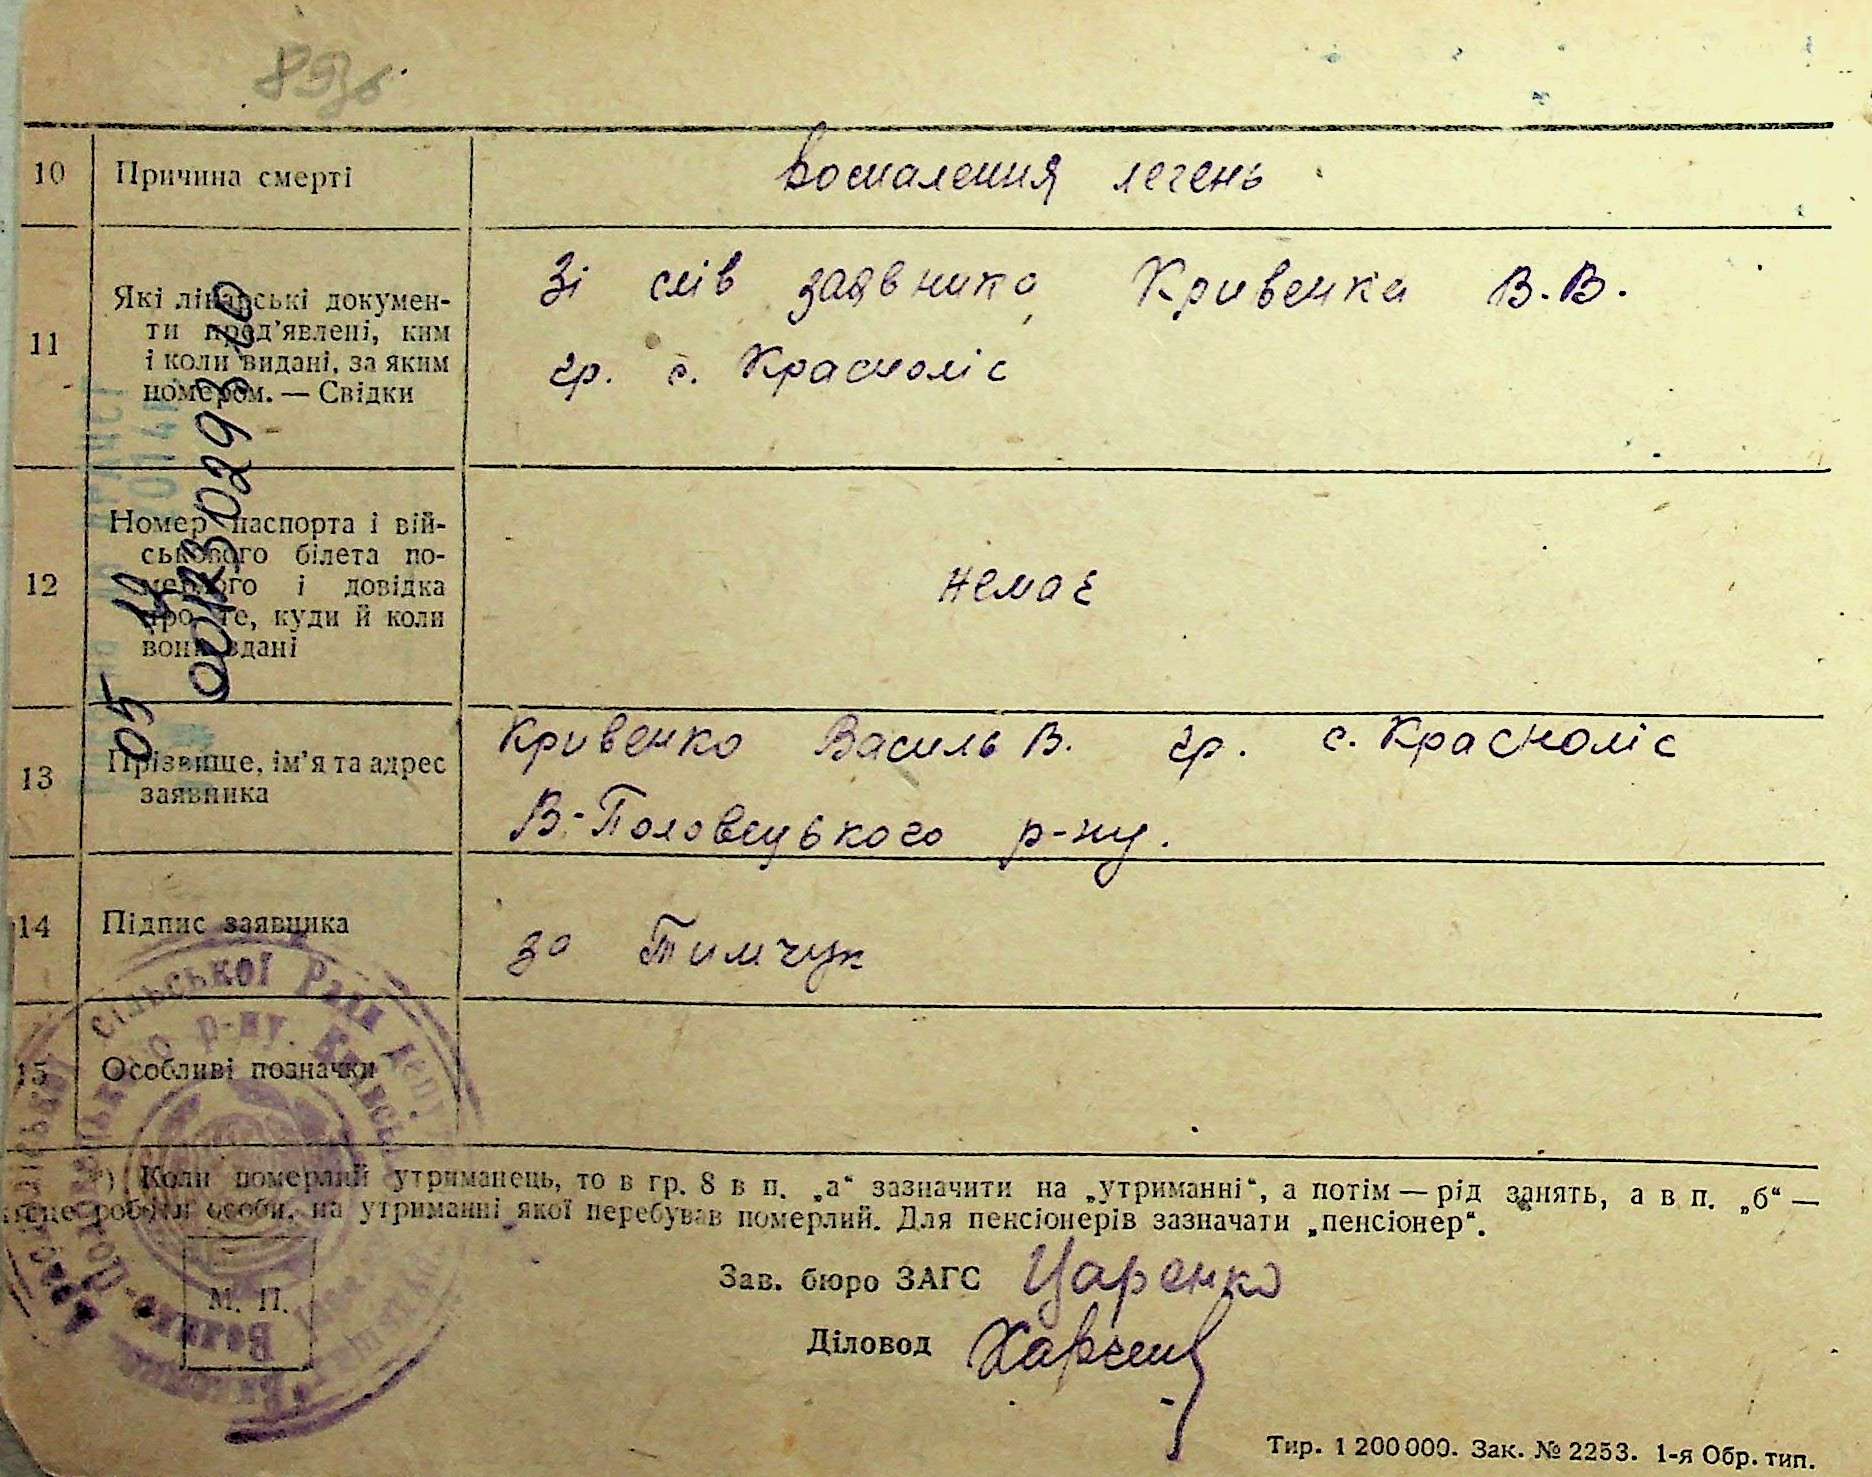 10 Причина смерті Воспалення легень
11 Які лікарські докумен-
ти пред'явлені, ким
і коли видані, за яким
номером. — Свідки
Зі слів заявника Кривенка В.В.
гр. с. Красноліс
12 Номер паспорта і вій-
ськового білета по-
мерлого і довідка
про те, куди й коли
вони здані
немає
13 Прізвище, ім'я та адрес
заявника
Кривенко Василь В. гр. с. Красноліс
В-Половецького р-ну.
14 Підпис заявника за Тимчук
15 Особливі позначки
*) Коли померлий утриманець, то в гр. 8 в п. „а“ зазначити на „утриманні“, а потім — рід занять, а в п. „б“ —
місце роботи особи, на утриманні якої перебував померлий. Для пенсіонерів зазначати „пенсіонер“.
Зав. бюро ЗАГС Царенко
Діловод
М. П.
сільської Ради
р-ну. Київсь
Велико-Полов
Тир. 1 200 000. Зак. № 2253. 1-я Обр. тип.
05